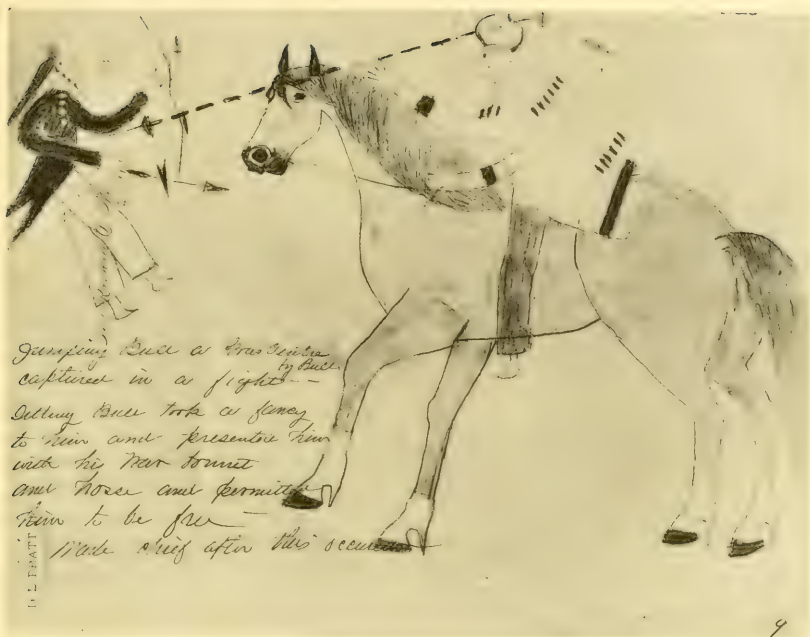 Jumping Bull a Gros Ventre
by Bull
captured in a fight —
Sitting Bull took a fancy
to him and presented him
with his War bonnet
and horse and permitted
him to be free —
Made chief after this occurence
PRATT
9